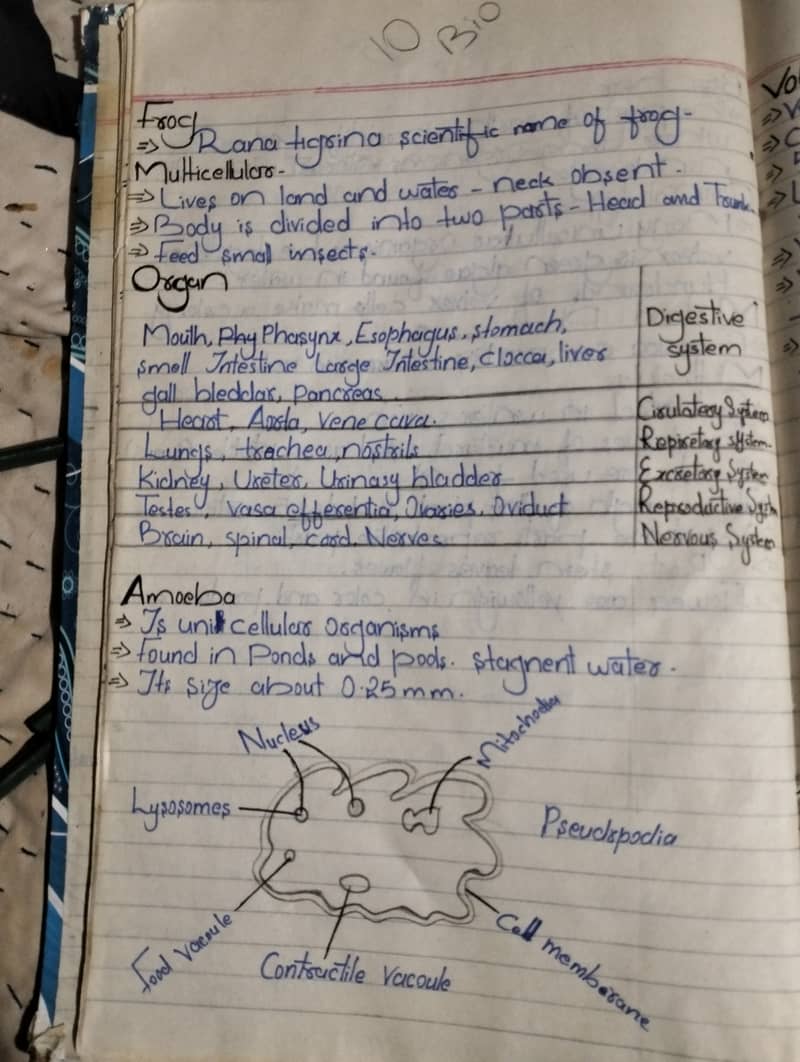 10 Bio
Frog
⇒ Rana tigrina scientific name of frog-
Multicellular-
⇒ Lives on land and water - neck absent.
⇒ Body is divided into two parts - Head and Trunk.
⇒ Feed small insects.
Organ
Mouth, Phy Pharynx, Esophagus, stomach,
small Intestine Large Intestine, clocca, liver
gall bleddar, pancreas
Digestive
system
Heart, Aorta, Vene cava. Circulatory System
Lungs, trachea, nostrils Repiretory system.
Kidney, Ureter, Urinary bladder Excretory System
Testes, vasa efferentia, Ovaries, Oviduct Reproductive System
Brain, spinal, cord, Nerves Nervous System
Amoeba
⇒ Is uni cellular organisms
⇒ found in Ponds and pods. stagnent water.
⇒ Its size about 0.25mm.
Nucleus
Mitochodia
Lysosomes
Pseudspodia
Food vacoule
Contractile vacoule
Cell memberane
Vo
⇒ V
⇒ C
⇒
⇒ L
⇒
⇒
⇒